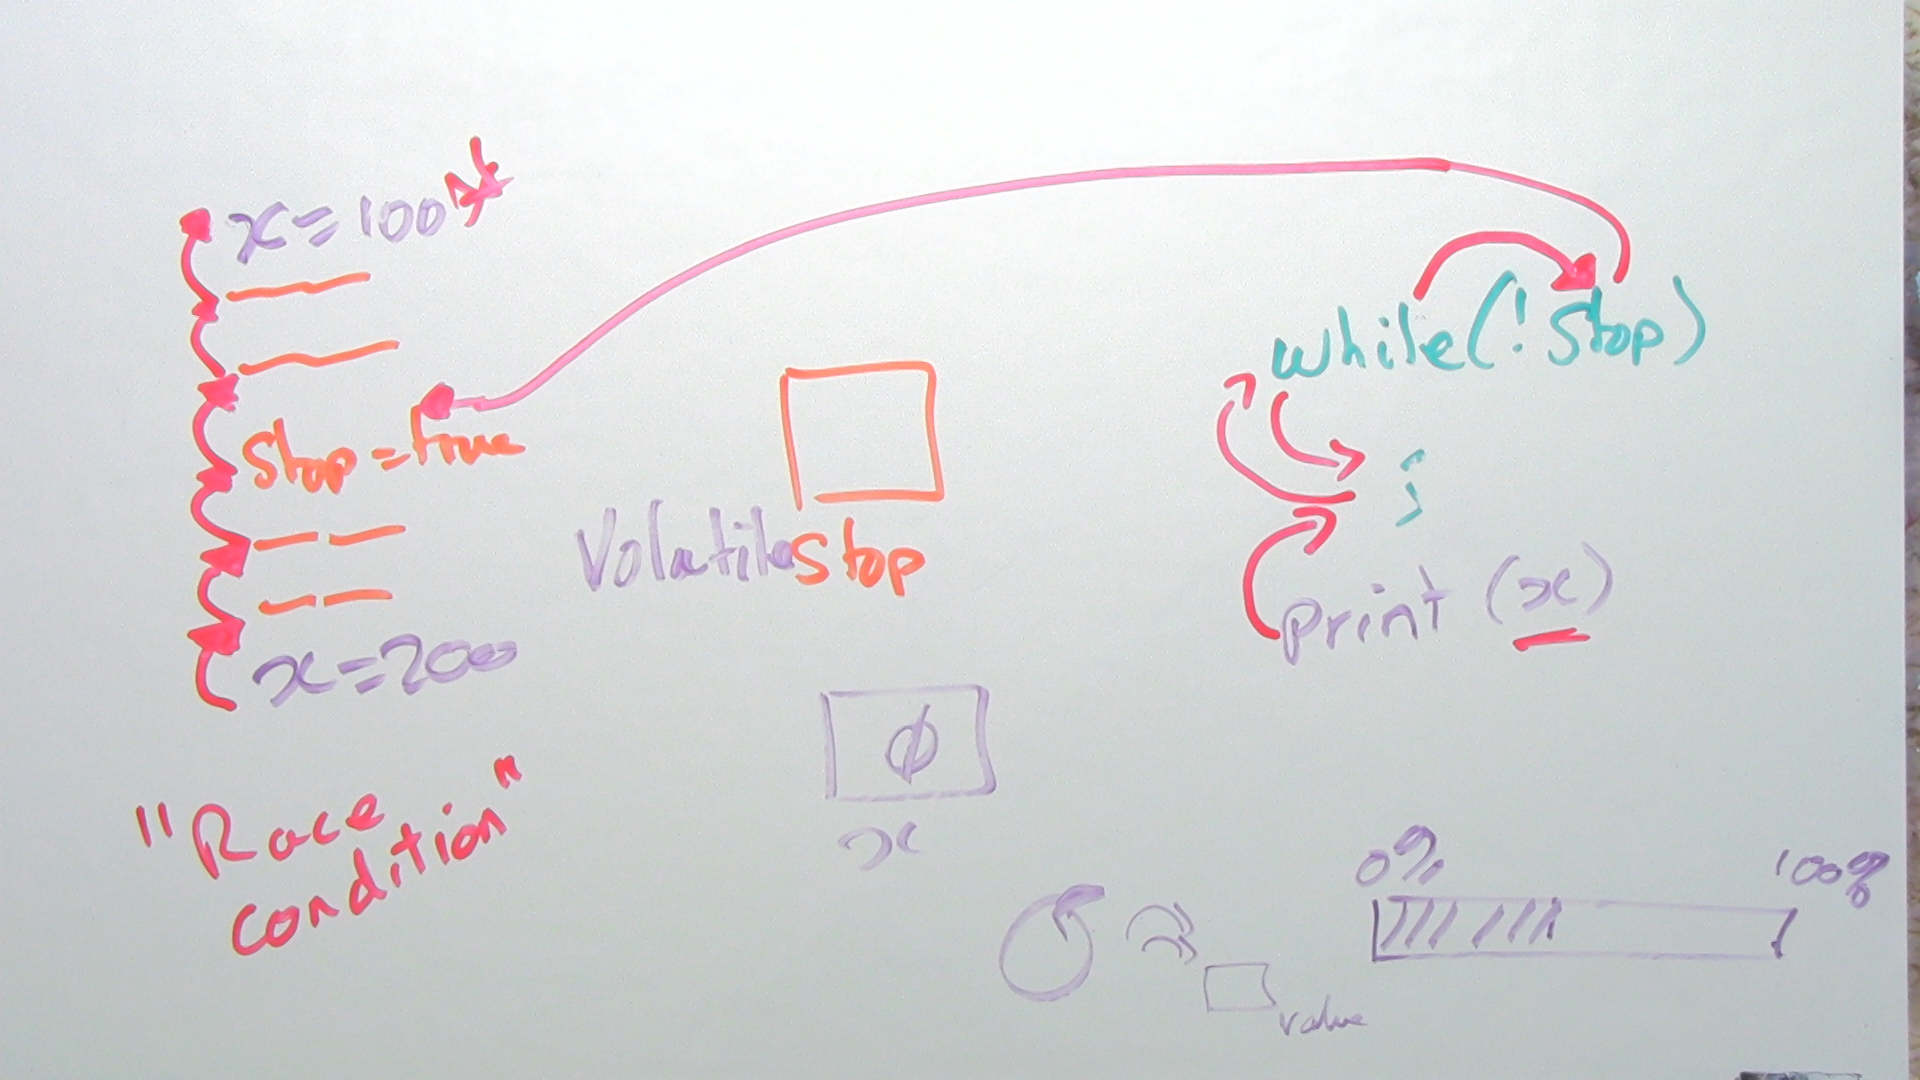 x=100
stop=true
x=200
"Race
condition"
volatile stop
Φ
x
while(! stop)
;
print (x)
0% 100%
value